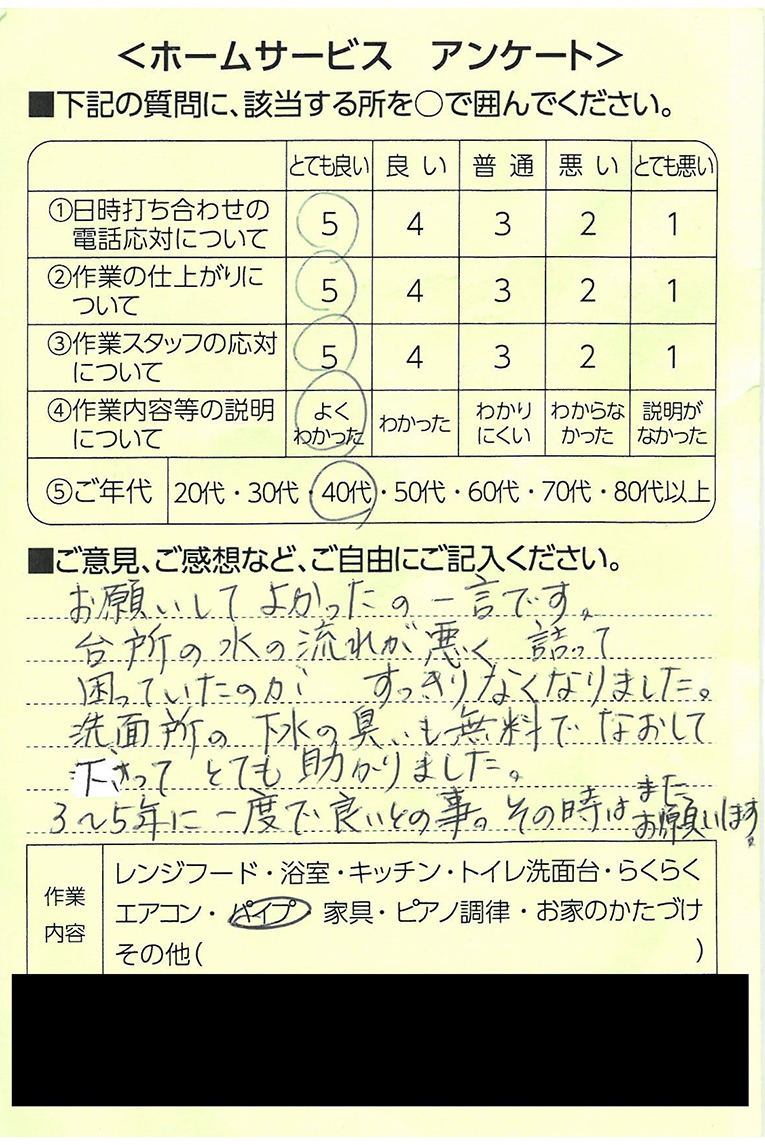 ＜ホームサービス　アンケート＞
■下記の質問に、該当する所を○で囲んでください。
とても良い　良い　普通　悪い　とても悪い
①日時打ち合わせの
電話応対について　5　4　3　2　1
②作業の仕上がりに
ついて　5　4　3　2　1
③作業スタッフの応対
について　5　4　3　2　1
④作業内容等の説明　よく　わかった　わかり　わからな　説明が
について　わかった　にくい　かった　なかった
⑤ご年代　20代・30代・40代・50代・60代・70代・80代以上
■ご意見、ご感想など、ご自由にご記入ください。
お願いしてよかったの一言です。
台所の水の流れが悪く 詰って
困っていたのが すっきりなくなりました。
洗面所の下水の臭いも無料でなおして
下さって とても助かりました。
3〜5年に一度で良いとの事。その時はまた
お願いします。
作業
内容
レンジフード・浴室・キッチン・トイレ洗面台・らくらく
エアコン・パイプ・家具・ピアノ調律・お家のかたづけ
その他(　)